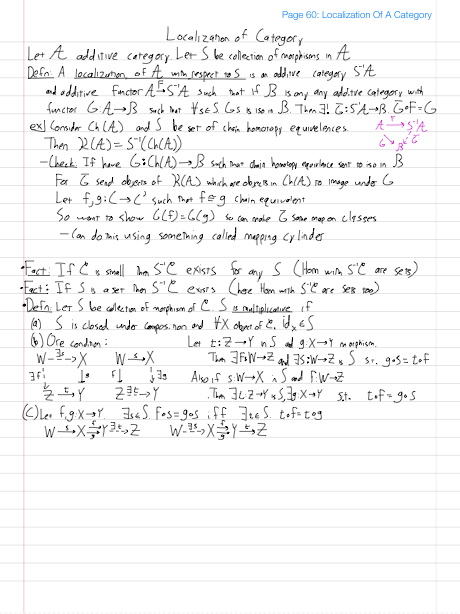 Page 60: Localization Of A Category
Localization of Category
Let A additive category. Let S be collection of morphisms in A
Defn: A localization of A with respect to S is an additive category S⁻¹A
and additive functor A →F S⁻¹A such that if B is any any additive category with
functor G: A→B such that ∀s∈S, Gs is iso in B. Then ∃! G̅: S⁻¹A→B. G̅∘F=G
ex] Consider Ch(A) and S be set of chain homotopy equivalences.
A →F S⁻¹A
G ↘ B ↙ G̅
Then K(A) = S⁻¹(Ch(A))
- Check: If have G: Ch(A) → B such that chain homotopy equivalence sent to iso in B
For G̅ send objects of K(A) which are objects in Ch(A) to image under G
Let f,g: C → C' such that f ≅ g chain equivalent
So want to show G(f)=G(g) so can make G̅ same map on classes
- Can do this using something called mapping cylinder
• Fact: If C is small then S⁻¹C exists for any S (Hom with S⁻¹C are sets)
• Fact: If S is a set then S⁻¹C exists (here Hom with S⁻¹C are sets too)
• Defn: Let S be collection of morphism of C. S is multiplicative if
(a) S is closed under composition and ∀X object of C, id_X ∈ S
(b) Ore condition: Let t: Z→Y in S and g: X→Y morphism.
W -∃s→ X W -s→ X Then ∃f: W→Z and ∃s: W→Z in S s.t. g∘s = t∘f
∃f↓ ↓g f↓ ↓∃g Also if s: W→X in S and f: W→Z
Z -t→ Y Z -∃t→ Y Then ∃t: Z→Y in S, ∃g: X→Y s.t. t∘f = g∘s
(c) Let f,g: X→Y. ∃s∈S. f∘s = g∘s iff ∃t∈S. t∘f = t∘g
W -s→ X ⇉ f g Y -∃t→ Z W -∃s→ X ⇉ f g Y -t→ Z